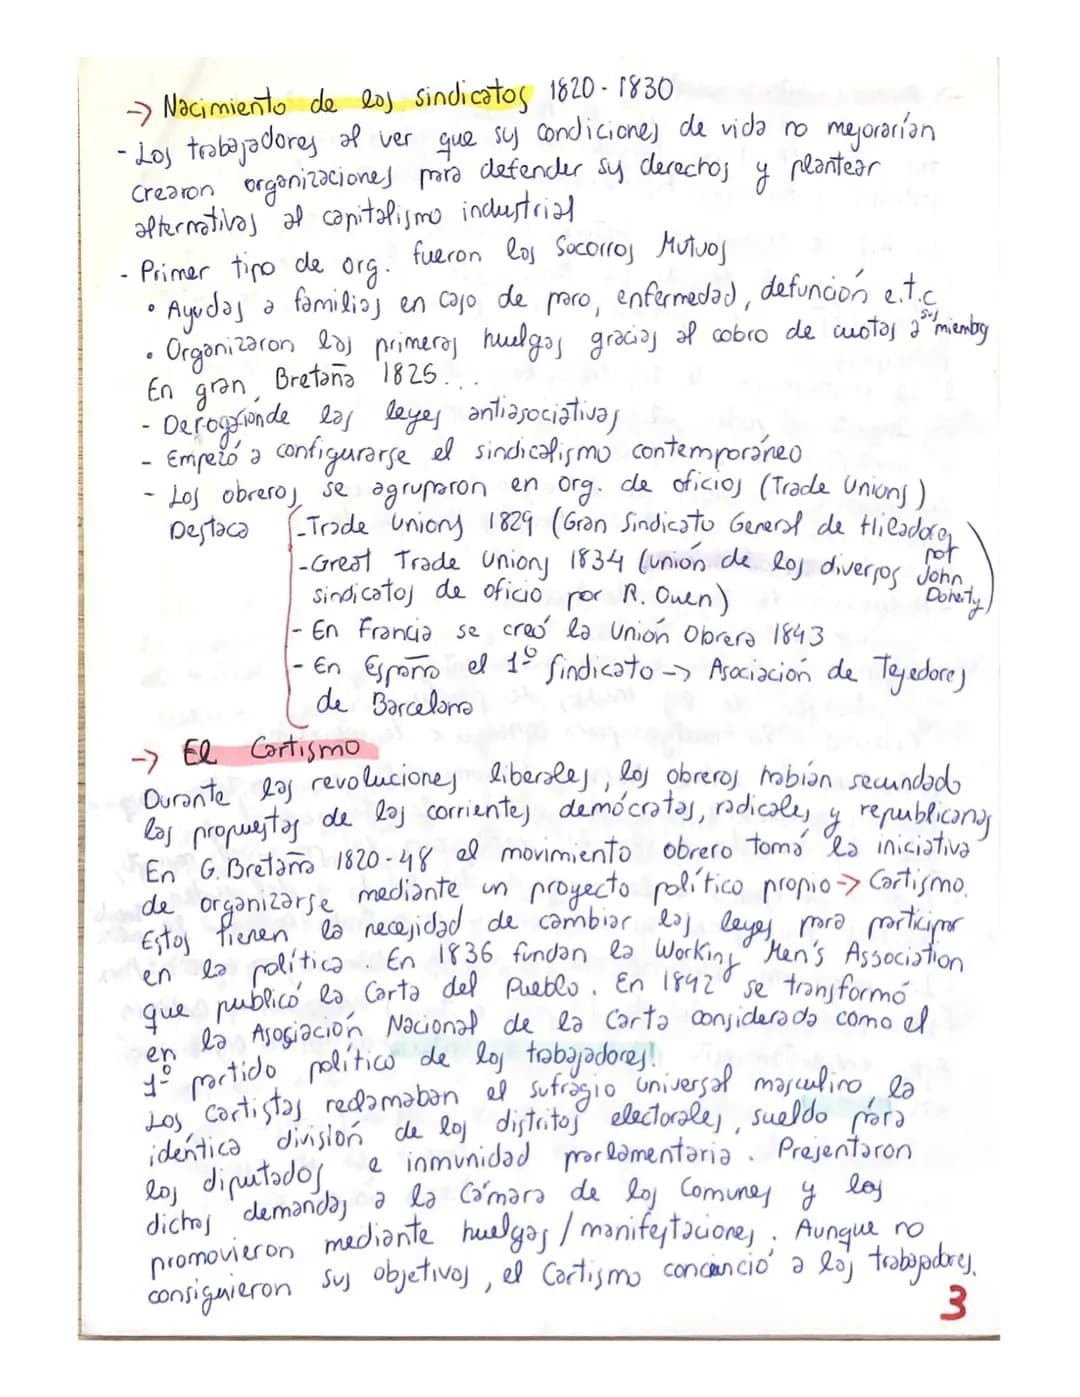 → Nacimiento de los sindicatos 1820-1830
- Los trabajadores al ver que sus condiciones de vida no mejorarían
crearon organizaciones para defender sus derechos y plantear
alternativas al capitalismo industrial
- Primer tipo de org. fueron los Socorros Mutuos
• Ayudas a familias en caso de paro, enfermedad, defunción e.t.c
• Organizaron las primeras huelgas gracias al cobro de cuotas a sus miembros
En gran Bretaña 1825...
- Derogación de las leyes antiasociativas
- Empezó a configurarse el sindicalismo contemporáneo
- Los obreros se agruparon en org. de oficios (Trade Unions)
Destaca
- Trade Unions 1829 (Gran Sindicato General de Hiladores por John Doherty)
- Great Trade Unions 1834 (unión de los diversos
sindicatos de oficio por R. Owen)
- En Francia se creó la Unión Obrera 1843
- En España el 1º sindicato → Asociación de Tejedores
de Barcelona
→ El Cartismo
Durante las revoluciones liberales, los obreros habían secundado
las propuestas de las corrientes demócratas, radicales y republicanas
En G. Bretaña 1820-48 el movimiento obrero tomá la iniciativa
de organizarse mediante un proyecto político propio → Cartismo.
Estos tienen la necesidad de cambiar las leyes para participar
en la política. En 1836 fundan la Working Men's Association
que publicó la Carta del Pueblo. En 1842 se transformó
en la Asociación Nacional de la Carta considerada como el
1º partido político de los trabajadores!
Los cartistas reclamaban el sufragio universal masculino, la
idéntica división de los distritos electorales, sueldo para
los diputados e inmunidad parlamentaria. Presentaron
dichas demandas a la Cámara de los Comunes y las
promovieron mediante huelgas/manifestaciones. Aunque no
consiguieron sus objetivos, el Cartismo concienció a los trabajadores.
3